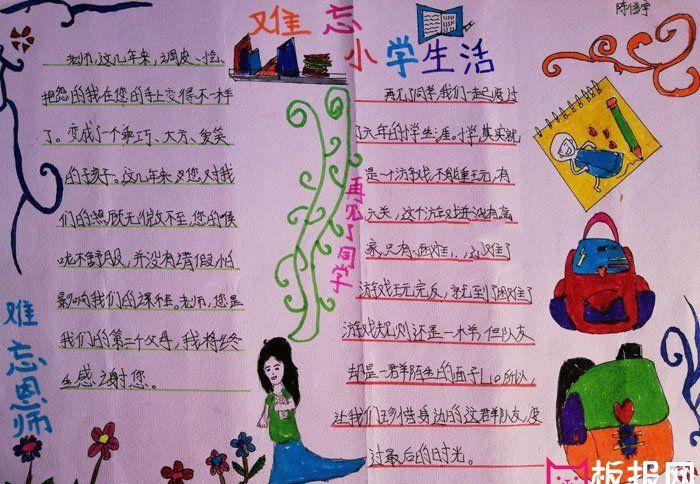 难忘小学生活
陈信宇
老师,这几年来,调皮、慌
把您的我在您的手上变得不一样
了。变成了一个乖巧、大方、爱笑
的孩子。这几年来您对我
们的照顾无微不至,您的喉
咙不舒服,并没有请假怕
影响我们的课程。老师,您是
我们的第二个父母,我将终
生感谢您。
难忘恩师
再见了同学
再见了同学,我们一起度过
了六年的小学生涯。小学,其实就
是一场游戏,不能重玩,有
六关,这个游戏并没有赢
家,只有困难
游戏玩完后,就到了困难了
游戏规则还是一木羊,但队友
却是一群陌生的面子L。所以,
让我们珍惜身边的这群队友,度
过最后的时光。
板报网